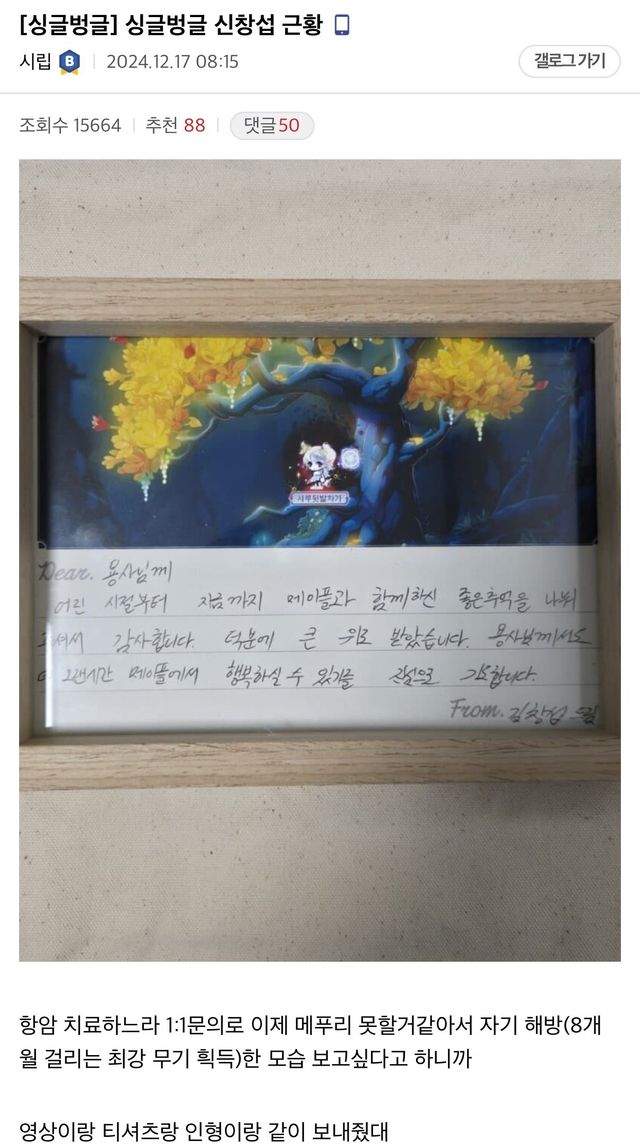 [싱글벙글] 싱글벙글 신창섭 근황
시립 B 2024.12.17 08:15 갤로그 가기
조회수 15664 추천 88 댓글 50
시루뒷발차기
Dear. 용사님께
어린 시절부터 지금까지 메이플과 함께하신 좋은추억을 나눠
주셔서 감사합니다. 덕분에 큰 위로 받았습니다. 용사님께서도
오랜시간 메이플에서 행복하실 수 있기를 진심으로 기도합니다.
From. 김창섭 드림
항암 치료하느라 1:1문의로 이제 메푸리 못할거같아서 자기 해방(8개
월 걸리는 최강 무기 획득)한 모습 보고싶다고 하니까
영상이랑 티셔츠랑 인형이랑 같이 보내줬대